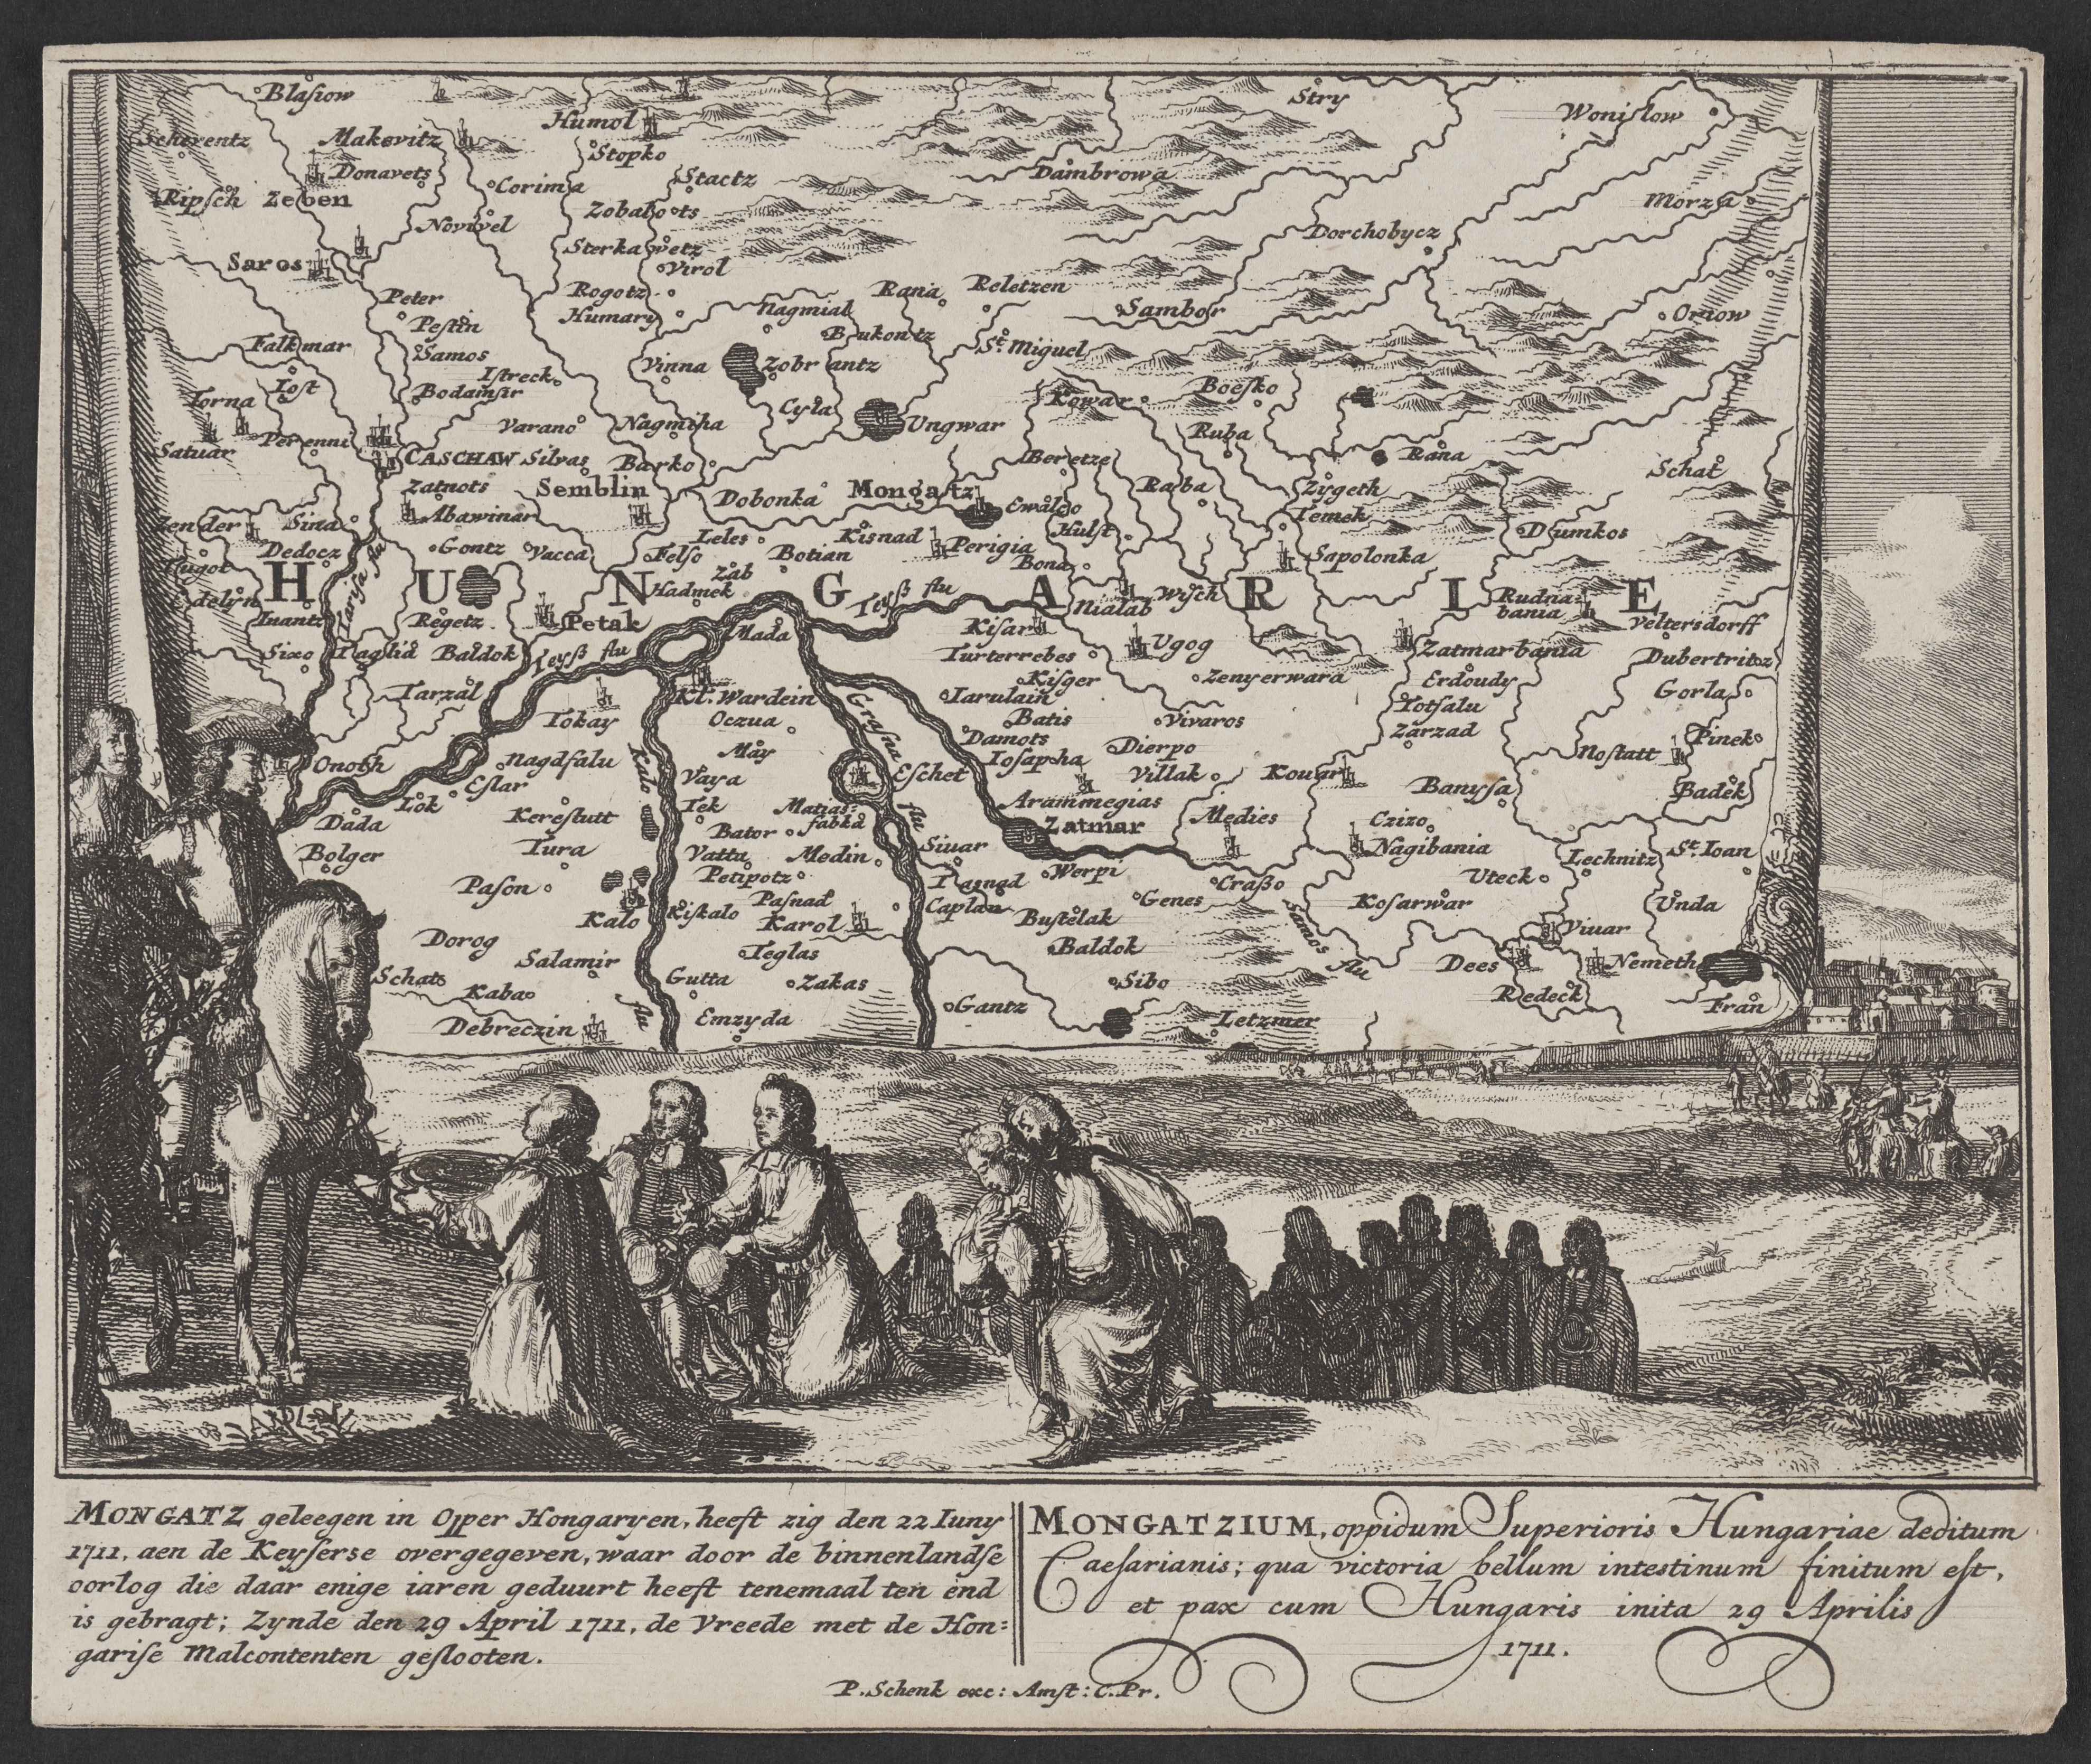 Blasiow
Stry
Wonislow
Humol
Scherentz
Makovitz
Stopko
Donavets
Corima
Stactz
Dambrowa
Ripsch
Zeben
Zobahots
Morza
Novivel
Dorchobycz
Sterkawetz
Saros
Virol
Peter
Rogotz
Rana
Reletzen
Humary
Nagmial
Sambor
Oriow
Pestin
Bukontz
Falkmar
Samos
St. Miguel
Vinna
Zobrantz
Istreck
Iost
Bodamsir
Boesko
Torna
Cyla
Kowar
Perenni
Varano
Nagmiha
Ungwar
Ruba
Satuar
CASCHAW
Silvas
Barko
Beretze
Rana
Schat
Zatnots
Semblin
Dobonka
Mongatz
Raba
Zygeth
Abawinar
Ewaldo
Temek
Sina
Leles
Kisnad
Hulst
Drumkos
Dedocz
Gontz
Vacca
Felso
Botian
Perigia
Sapolonka
Zab
Bona
HUNGARIE
Tarisa flu
Hadmek
Teyß flu
Nialab
Wisch
Rudna=
bania
Regetz
Petak
Mada
Kisar
Veltersdorff
Sixo
Taglia
Baldok
Teyß flu
Turterrebes
Ugog
Zatmarbania
Dubertritz
Tarzal
Kl. Wardein
Kisger
Zenyerwara
Erdoudy
Gorlas
Tarulain
Tokay
Oczua
Grasna
Batis
Vivaros
Totsalu
Damots
Zarzad
Onoth
Nagdsalu
May
Iosapha
Dierpo
Nostatt
Pinek
Kalo
Vaya
Eschet
Villak
Kouar
Eslar
Banysa
Badek
Lok
Tek
Matias=
fabka
flu
Arammegias
Dada
Kerestutt
Bator
Zatmar
Medies
Czizo
Bolger
Tura
Vatta
Modin
Siuar
Nagibania
Lechnitz
St. Ioan
Pason
Petipotz
Tasnad
Werpi
Craßo
Uteck
Kalo
Kiskalo
Pasnad
Caplan
Genes
Kosarwar
Unda
Karol
Bustelak
Samos flu
Viuar
Dorog
Teglas
Baldok
Salamir
Dees
Nemeth
Schats
Gutta
Zakas
Sibo
Kaba
Redeck
Fran
flu
Gantz
Debreczin
Emzyda
Letzmer
MONGATZ geleegen in Opper Hongaryen, heeft zig den 22 Iuny
1711, aen de Keyserse overgegeven, waar door de binnenlandse
oorlog die daar enige iaren geduurt heeft tenemaal ten end
is gebragt; Zynde den 29 April 1711, de Vreede met de Hon=
garise Malcontenten geslooten.
MONGATZIUM, oppidum Superioris Hungariae deditum
Caesarianis; qua victoria bellum intestinum finitum est,
et pax cum Hungaris inita 29 Aprilis
1711.
P. Schenk exc: Amst: C. Pr.